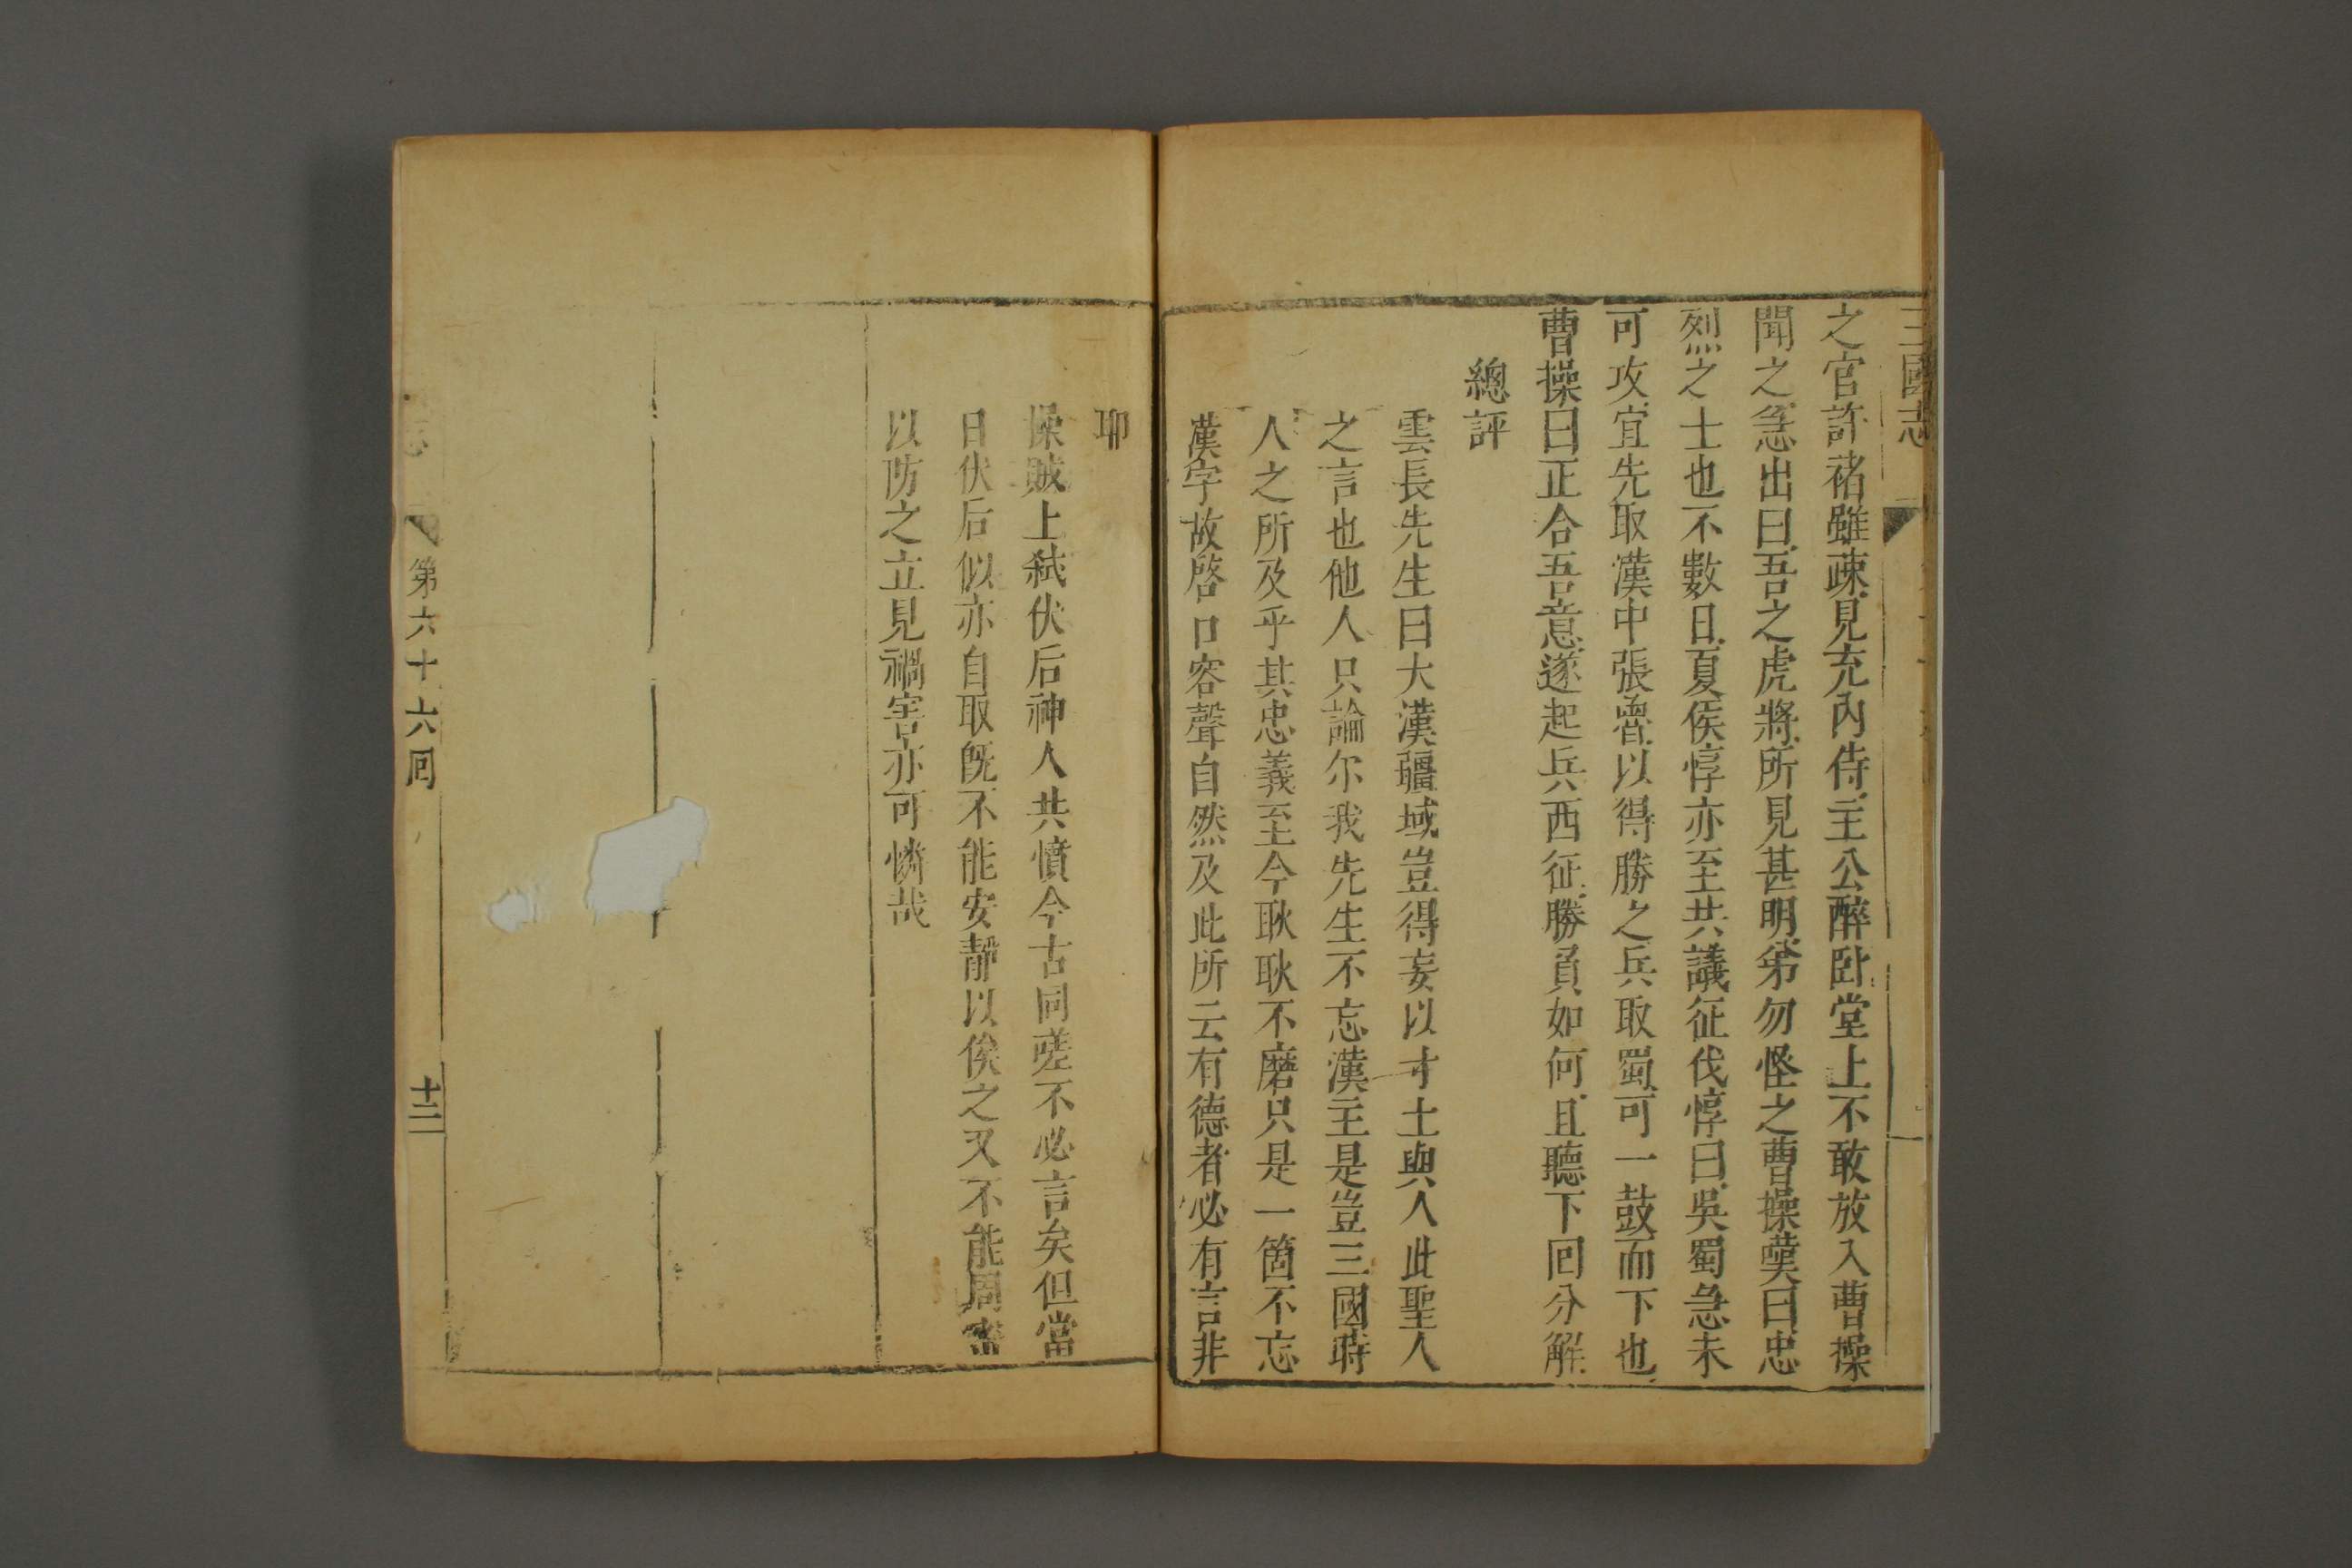 三國志
之官許褚雖疎見充內侍主公醉卧堂上不敢放入曹操
聞之急出曰吾之虎將所見甚明第勿怪之曹操嘆曰忠
烈之士也不數日夏侯惇亦至共議征伐惇曰吳蜀急未
可攻宜先取漢中張魯以得勝之兵取蜀可一鼓而下也
曹操曰正合吾意遂起兵西征勝負如何且聽下回分解
總評
雲長先生曰大漢疆域豈得妄以寸土與人此聖人
之言也他人只論尔我先生不忘漢主是豈三國時
人之所及乎其忠義至今耿耿不磨只是一箇不忘
漢字故啓口容聲自然及此所云有德者必有言非
耶
操賊上弒伏后神人共憤今古同嗟不必言矣但當
日伏后似亦自取旣不能安靜以俟之又不能周密
以防之立見禍害亦可憐哉
志 第六十六回 十二